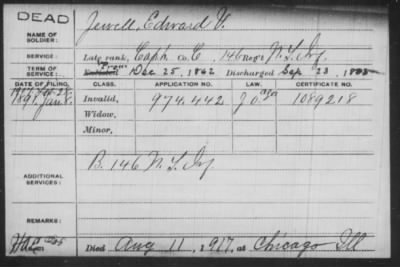 DEAD
NAME OF SOLDIER: Jewell, Edward W.
SERVICE: Late rank, Capt. Co. C, 146 Reg't N.Y. Inf.
TERM OF SERVICE: Enlisted Dec 25, 1862 Discharged Sep 23, 18
DATE OF FILING. CLASS. APPLICATION NO. LAW. CERTIFICATE NO.
1891 Jan 8. Invalid, 974.442 1089218
Widow,
Minor,
ADDITIONAL SERVICES: B. 146 N.Y. Inf
REMARKS:
Died Aug 11, 1917, at Chicago Ill